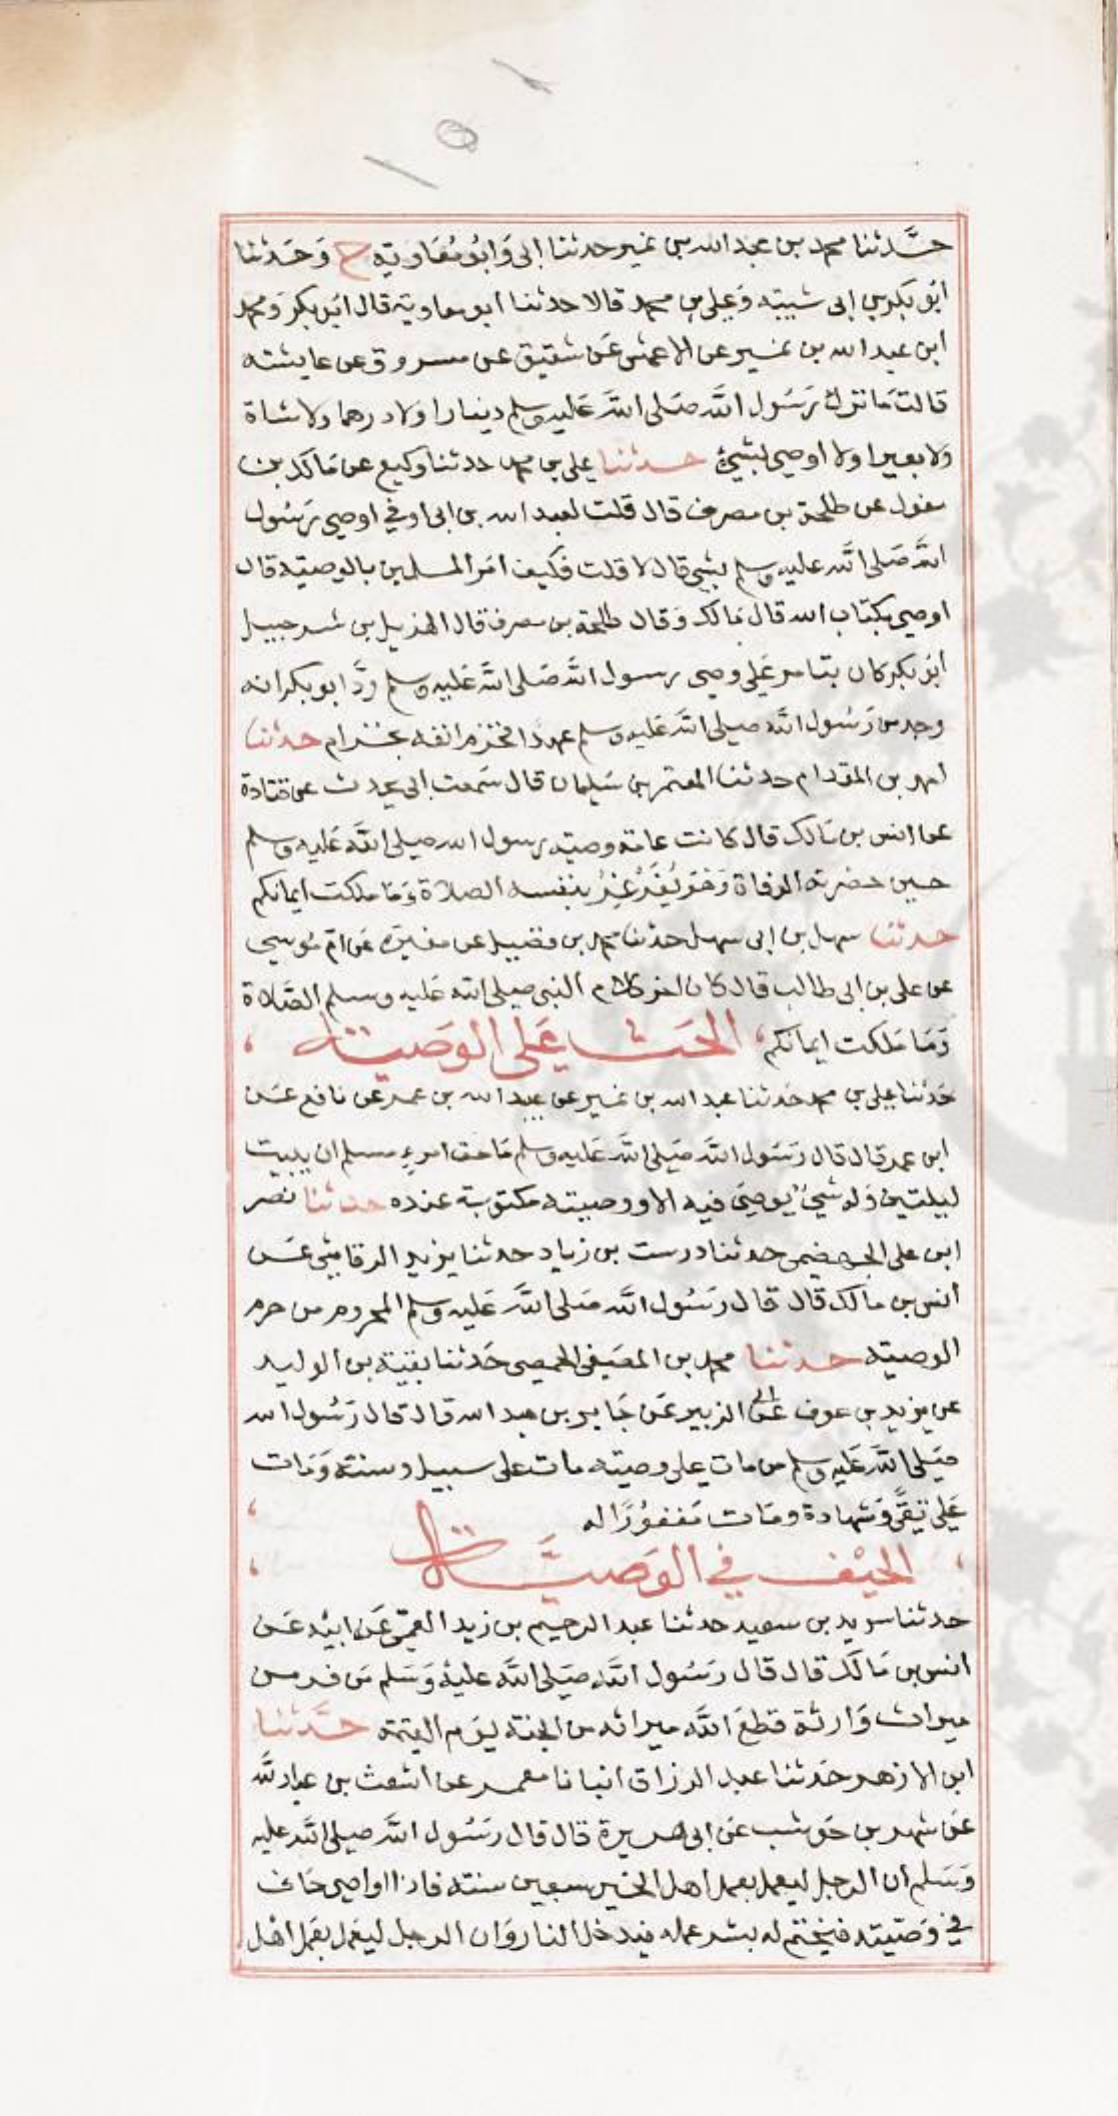 حدثنا محمد بن عبد الله بن نمير حدثنا ابى وابو معاوية ح وحدثنا
ابو بكر بن ابى شيبة وعلى بن محمد قالا حدثنا ابو معاوية قال ابو بكر ومحمد
ابن عبد الله بن نمير عن الاعمش عن شقيق عن مسروق عن عايشته
قالت ما ترك رسول الله صلى الله عليه وسلم دينارا ولا درهما ولا شاة
ولا بعيرا ولا اوصى بشئ حدثنا على بن محمد حدثنا وكيع عن مالك بن
مغول عن طلحة بن مصرف قال قلت لعبد الله بن ابى اوفى اوصى رسول
الله صلى الله عليه وسلم بشى قال لا قلت فكيف امر المسلمين بالوصيته قال
اوصى بكتاب الله قال مالك وقال طلحة بن مصرف قال الهذيل بن شرحبيل
ابو بكر كان يتامر على وصى رسول الله صلى الله عليه وسلم ود ابو بكر انه
وجد من رسول الله صلى الله عليه وسلم عهدا فخزم انفه بخزام حدثنا
احمد بن المقدام حدثنا المعتمر بن سليمان قال سمعت ابى يحدث عن قتادة
عن انس بن مالك قال كانت عامة وصيته رسول الله صلى الله عليه وسلم
حين حضرته الوفاة وهو يغرغر بنفسه الصلاة وما ملكت ايمانكم
حدثنا سهل بن ابى سهل حدثنا محمد بن فضيل عن مغيرة عن ام موسى
عن على بن ابى طالب قال كان اخر كلام النبى صلى الله عليه وسلم الصلاة
وما ملكت ايمانكم الحث على الوصية
حدثنا على بن محمد حدثنا عبد الله بن نمير عن عبيد الله بن عمر عن نافع عن
ابن عمر قال قال رسول الله صلى الله عليه وسلم ما حق امرء مسلم ان يبيت
ليلتين وله شئ يوصى فيه الا ووصيته مكتوبة عنده حدثنا نصر
ابن على الجهضمى حدثنا درست بن زياد حدثنا يزيد الرقاشى عن
انس بن مالك قال قال رسول الله صلى الله عليه وسلم المحروم من حرم
الوصيته حدثنا محمد بن المصفى الحمصى حدثنا بقية بن الوليد
عن يزيد بن عوف عن ابى الزبير عن جابر بن عبد الله قال قال رسول الله
صلى الله عليه وسلم من مات على وصيته مات على سبيل وسنته ومات
على تقى وشهادة ومات مغفورا له
الحيف في الوصية
حدثنا سويد بن سعيد حدثنا عبد الرحيم بن زيد العمى عن ابيه عن
انس بن مالك قال قال رسول الله صلى الله عليه وسلم من فر من
ميراث وارثه قطع الله ميراثه من الجنته يوم القيمة حدثنا
ابن الازهر حدثنا عبد الرزاق انبانا معمر عن اشعث بن عبد الله
عن شهر بن حوشب عن ابى هريرة قال قال رسول الله صلى الله عليه
وسلم ان الرجل ليعمل بعمل اهل الخير سبعين سنته فاذا اوصى حاف
في وصيته فيختم له بشر عمله فيدخل النار وان الرجل ليعمل بعمل اهل